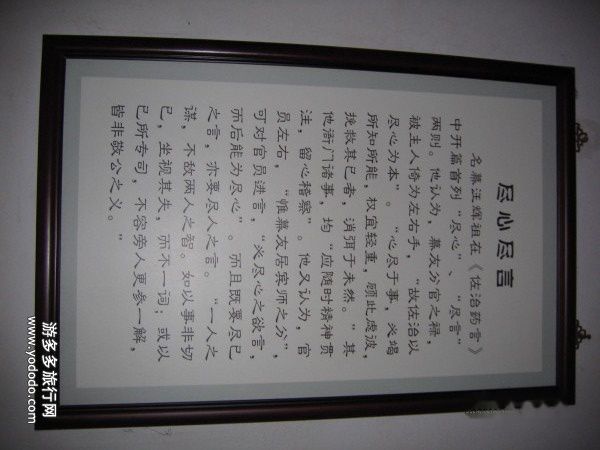 尽心尽言
名幕汪辉祖在《佐治药言》
中开篇首列“尽心”、“尽言”
两则。他认为，幕友分官之禄，
被主人倚为左右手，“故佐治以
尽心为本”。“心尽于事，必竭
所知所能，权宜轻重，顾此虑彼，
挽救其已著，消弭于未然。”其
他衙门诸事，均“应随时精神贯
注，留心稽察”。他又认为，官
员左右，“惟幕友居宾师之分”，
可对官员进言，“必尽心之欲言，
而后能为尽心”。而且既要尽已
之言，亦要尽人之言。“一人之
谋，不敌两人之智。如以事非切
已，坐视其失，而不一词；或以
已所专司，不容旁人更参一解，
皆非敬公之义。”
游多多旅行网
www.yododo.com